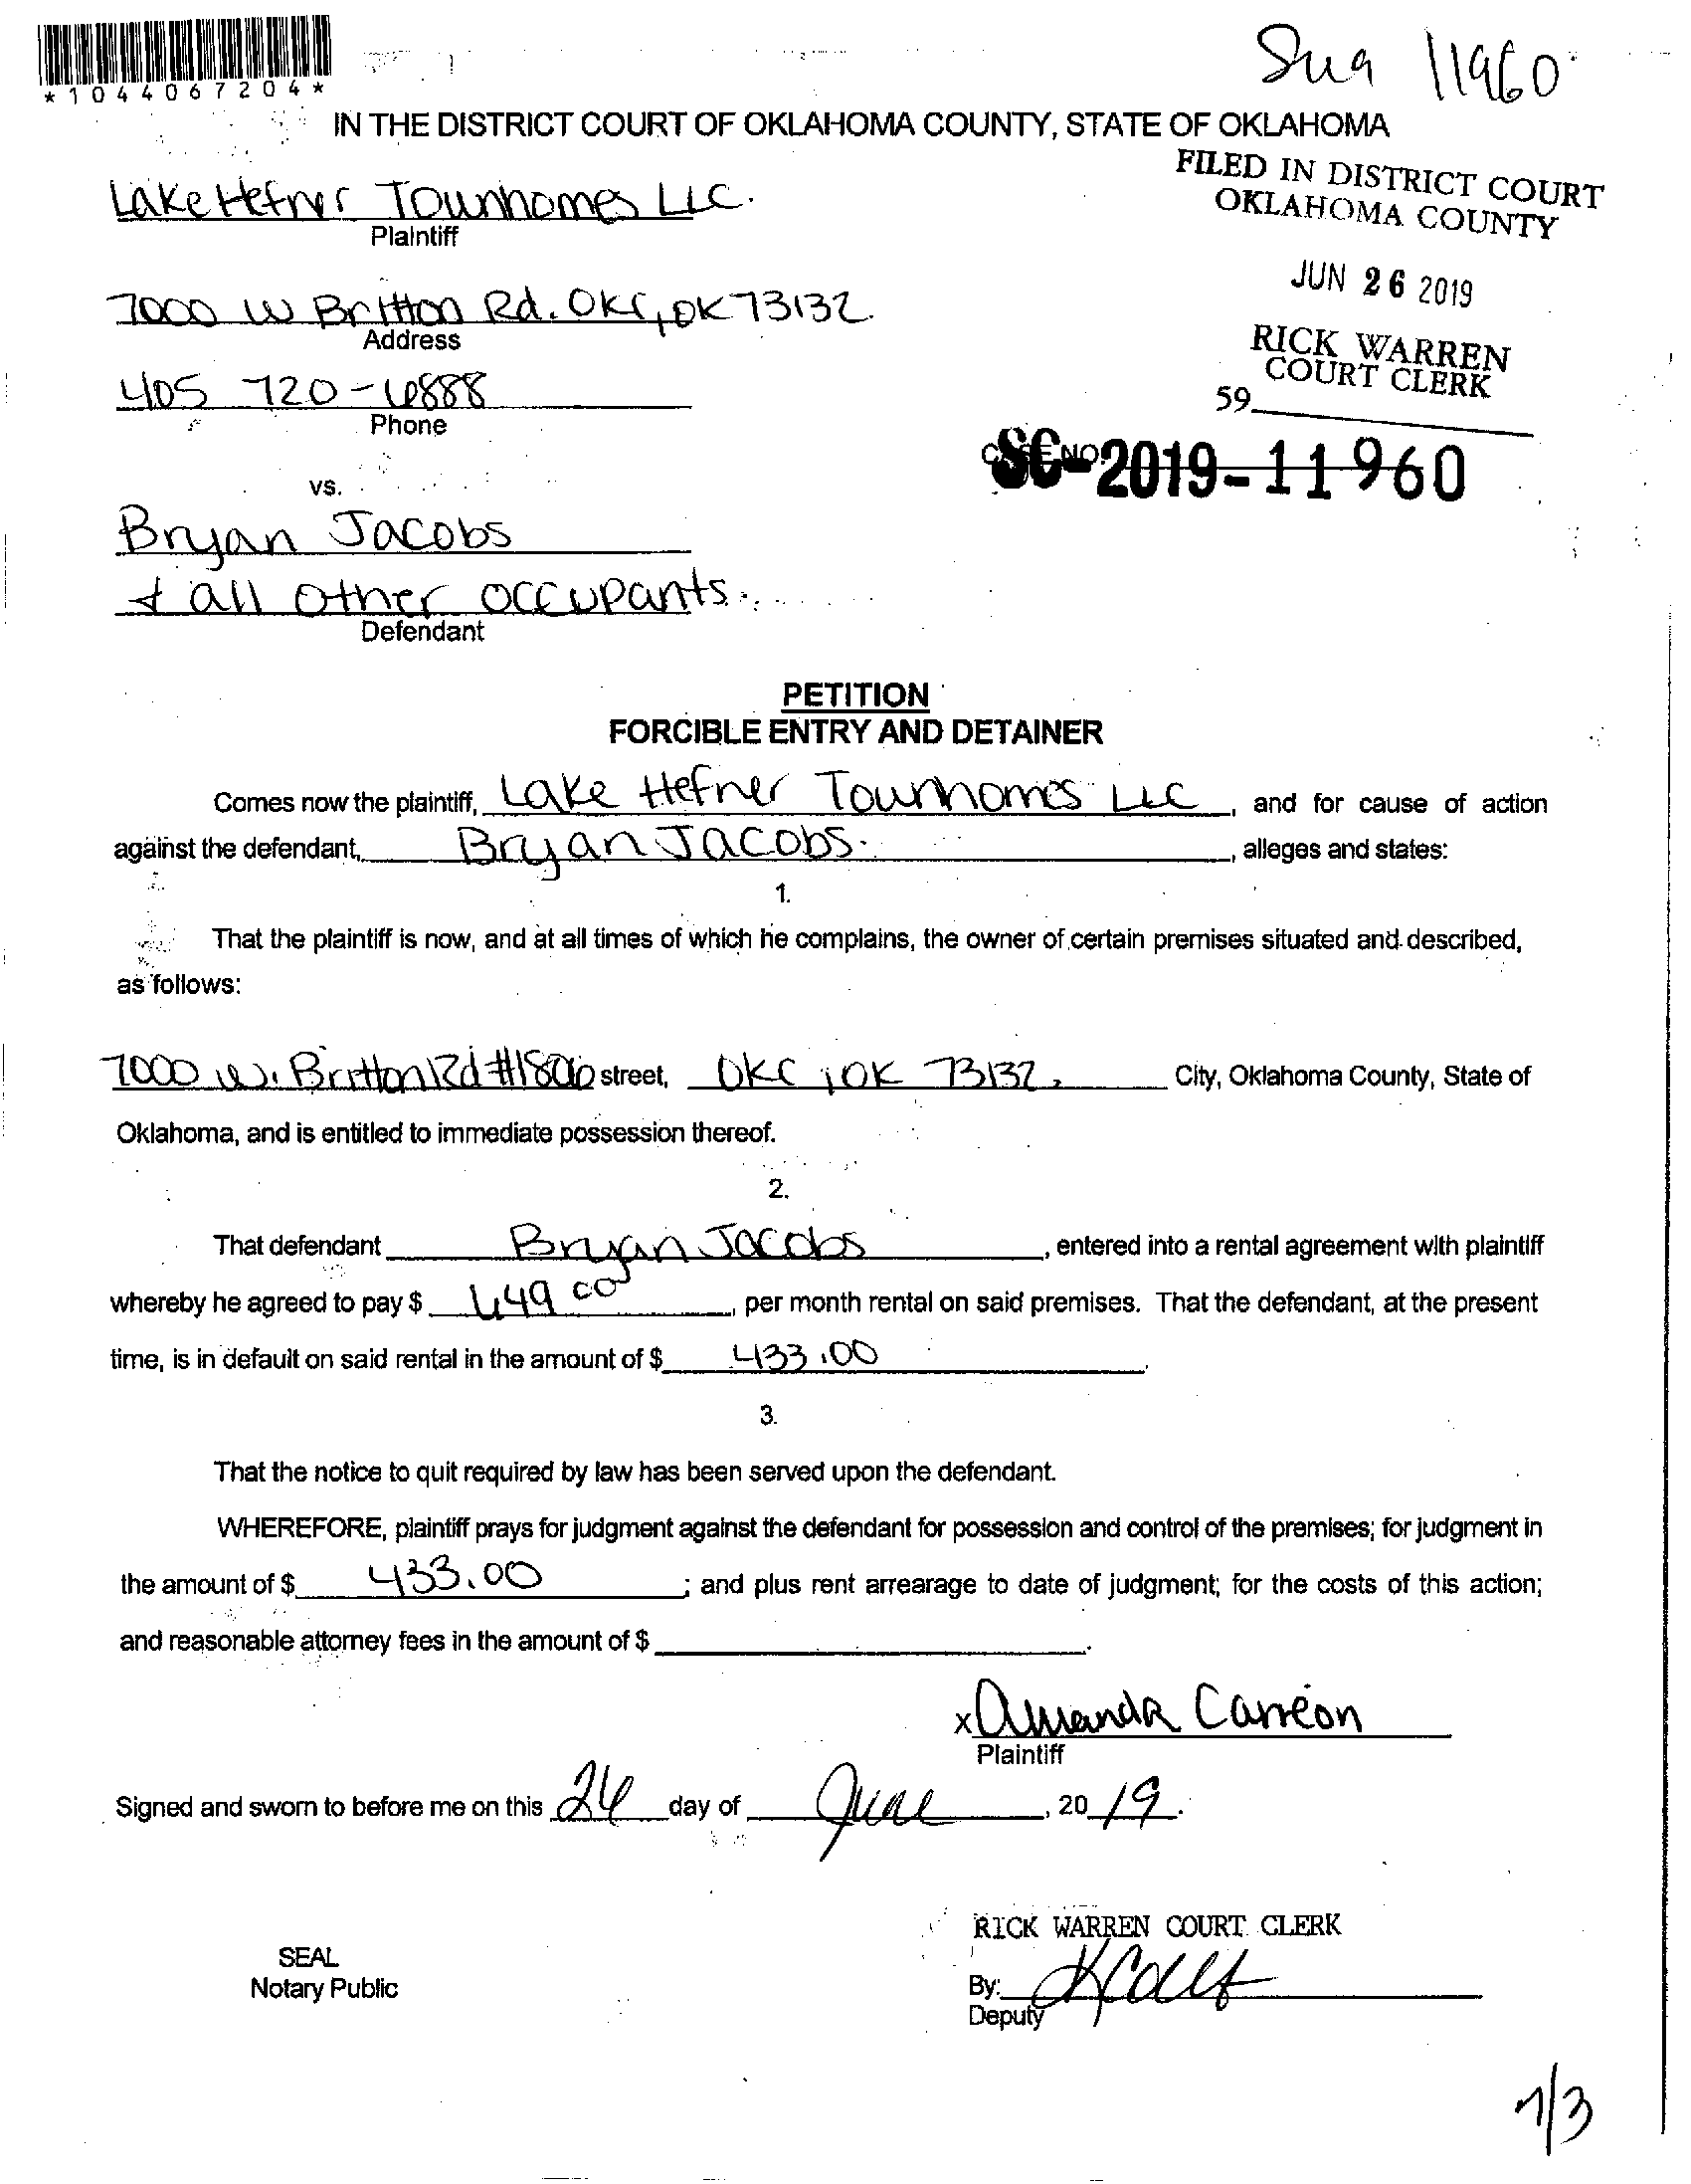 *1044067204*
Sua 11960
IN THE DISTRICT COURT OF OKLAHOMA COUNTY, STATE OF OKLAHOMA
FILED IN DISTRICT COURT
OKLAHOMA COUNTY
Lake Hefner Townhomes LLC.
Plaintiff
JUN 26 2019
7000 W Britton Rd. OKC, OK 73132.
Address
RICK WARREN
COURT CLERK
405 720-6888
59
Phone
SC-2019-11960
vs.
Bryan Jacobs
& all other occupants.
Defendant
PETITION
FORCIBLE ENTRY AND DETAINER
Comes now the plaintiff, Lake Hefner Townhomes LLC, and for cause of action
against the defendant, Bryan Jacobs., alleges and states:
1.
That the plaintiff is now, and at all times of which he complains, the owner of certain premises situated and described,
as follows:
7000 W. Britton Rd street, OKC, OK 73132, City, Oklahoma County, State of
Oklahoma, and is entitled to immediate possession thereof.
2.
That defendant Bryan Jacobs, entered into a rental agreement with plaintiff
whereby he agreed to pay $ 649 00, per month rental on said premises. That the defendant, at the present
time, is in default on said rental in the amount of $ 433.00.
3.
That the notice to quit required by law has been served upon the defendant.
WHEREFORE, plaintiff prays for judgment against the defendant for possession and control of the premises; for judgment in
the amount of $ 433.00; and plus rent arrearage to date of judgment; for the costs of this action;
and reasonable attorney fees in the amount of $.
x Amanda Carreon
Plaintiff
Signed and sworn to before me on this day of June, 20 19.
RICK WARREN COURT CLERK
SEAL
Notary Public
By:
Deputy
7/3